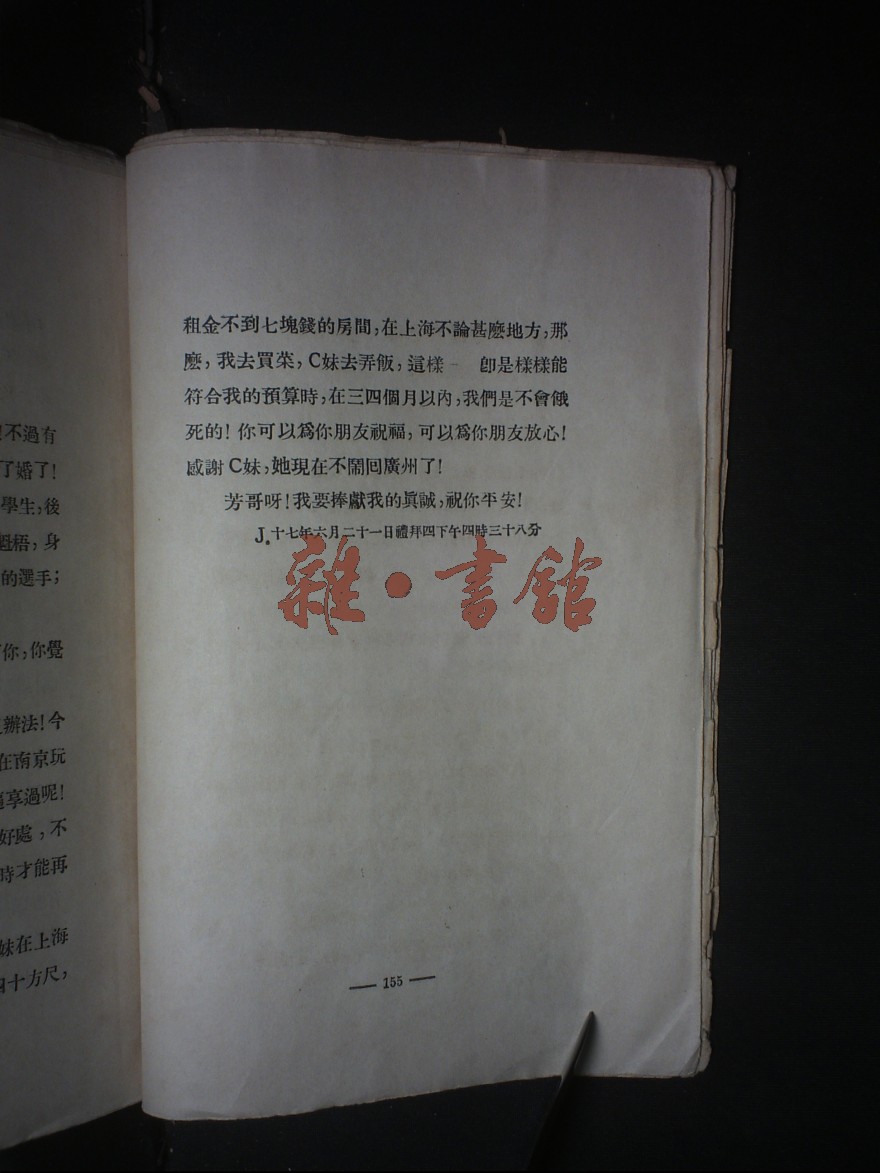 不過有
了婚了！
學生，後
魁梧，身
的選手；
你，你覺
辦法！今
在南京玩
享過呢！
好處，不
時才能再
妹在上海
四十方尺，
租金不到七塊錢的房間，在上海不論甚麽地方，那
麽，我去買菜，C妹去弄飯，這樣－　卽是樣樣能
符合我的預算時，在三四個月以內，我們是不會餓
死的！你可以爲你朋友祝福，可以爲你朋友放心！
感謝C妹，她現在不鬧囘廣州了！
芳哥呀！我要捧獻我的眞誠，祝你平安！
J．十七年六月二十一日禮拜四下午四時三十八分
雜·書館
— 155 —